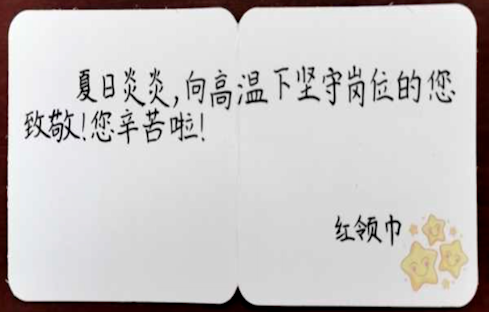 夏日炎炎,向高温下坚守岗位的您
致敬!您辛苦啦!
红领巾